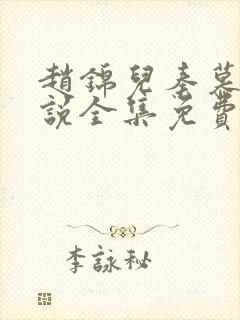 趙錦兒秦慕
說全集免費
李詠秘